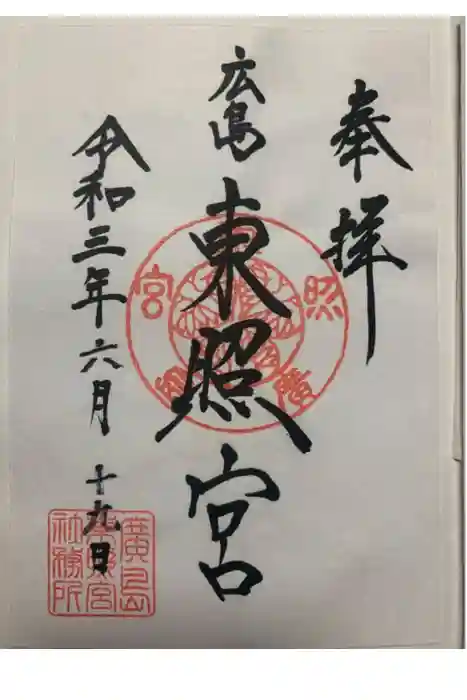 奉拝
広島
東照宮
令和三年六月十九日
廣島
東照宮
社務所